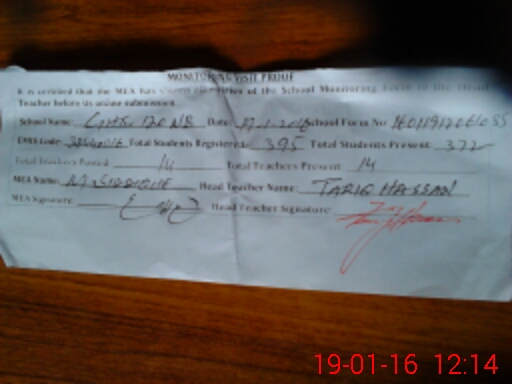 MONITORING VISIT PROOF
It is certified that the MEA has shown of the School Monitoring Form to the Head
Teacher before its online submission.
School Name: 120 NB Date School Form No
EMIS Code: Total Students Registered: 395 Total Students Present: 372
Total Teachers Posted 14 Total Teachers Present 14
MEA Name: M. SIDDIQUE Head Teacher Name: TARIQ HASSAN
MEA Signature: Head Teacher Signature:
19-01-16 12:14